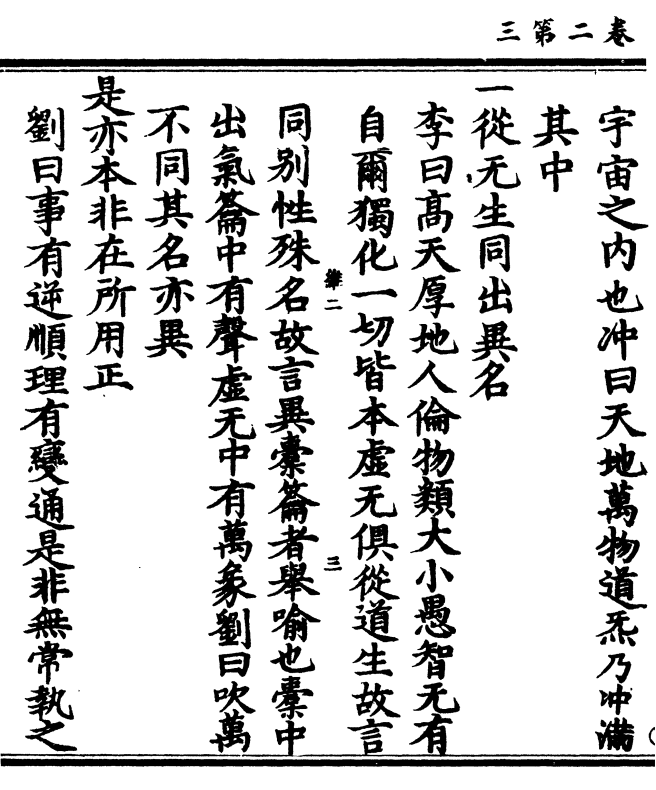 三第二卷
宇宙之内也冲曰天地萬物道炁乃冲滿
其中
一從无生同出異名
李曰高天厚地人倫物類大小愚智无有
自爾獨化一切皆本虛无俱從道生故言
二
三
同別性殊名故言異橐籥者舉喻也橐中
出氣籥中有聲虛无中有萬象劉曰吹萬
不同其名亦異
是亦本非在所用正
劉曰事有逆順理有變通是非無常執之